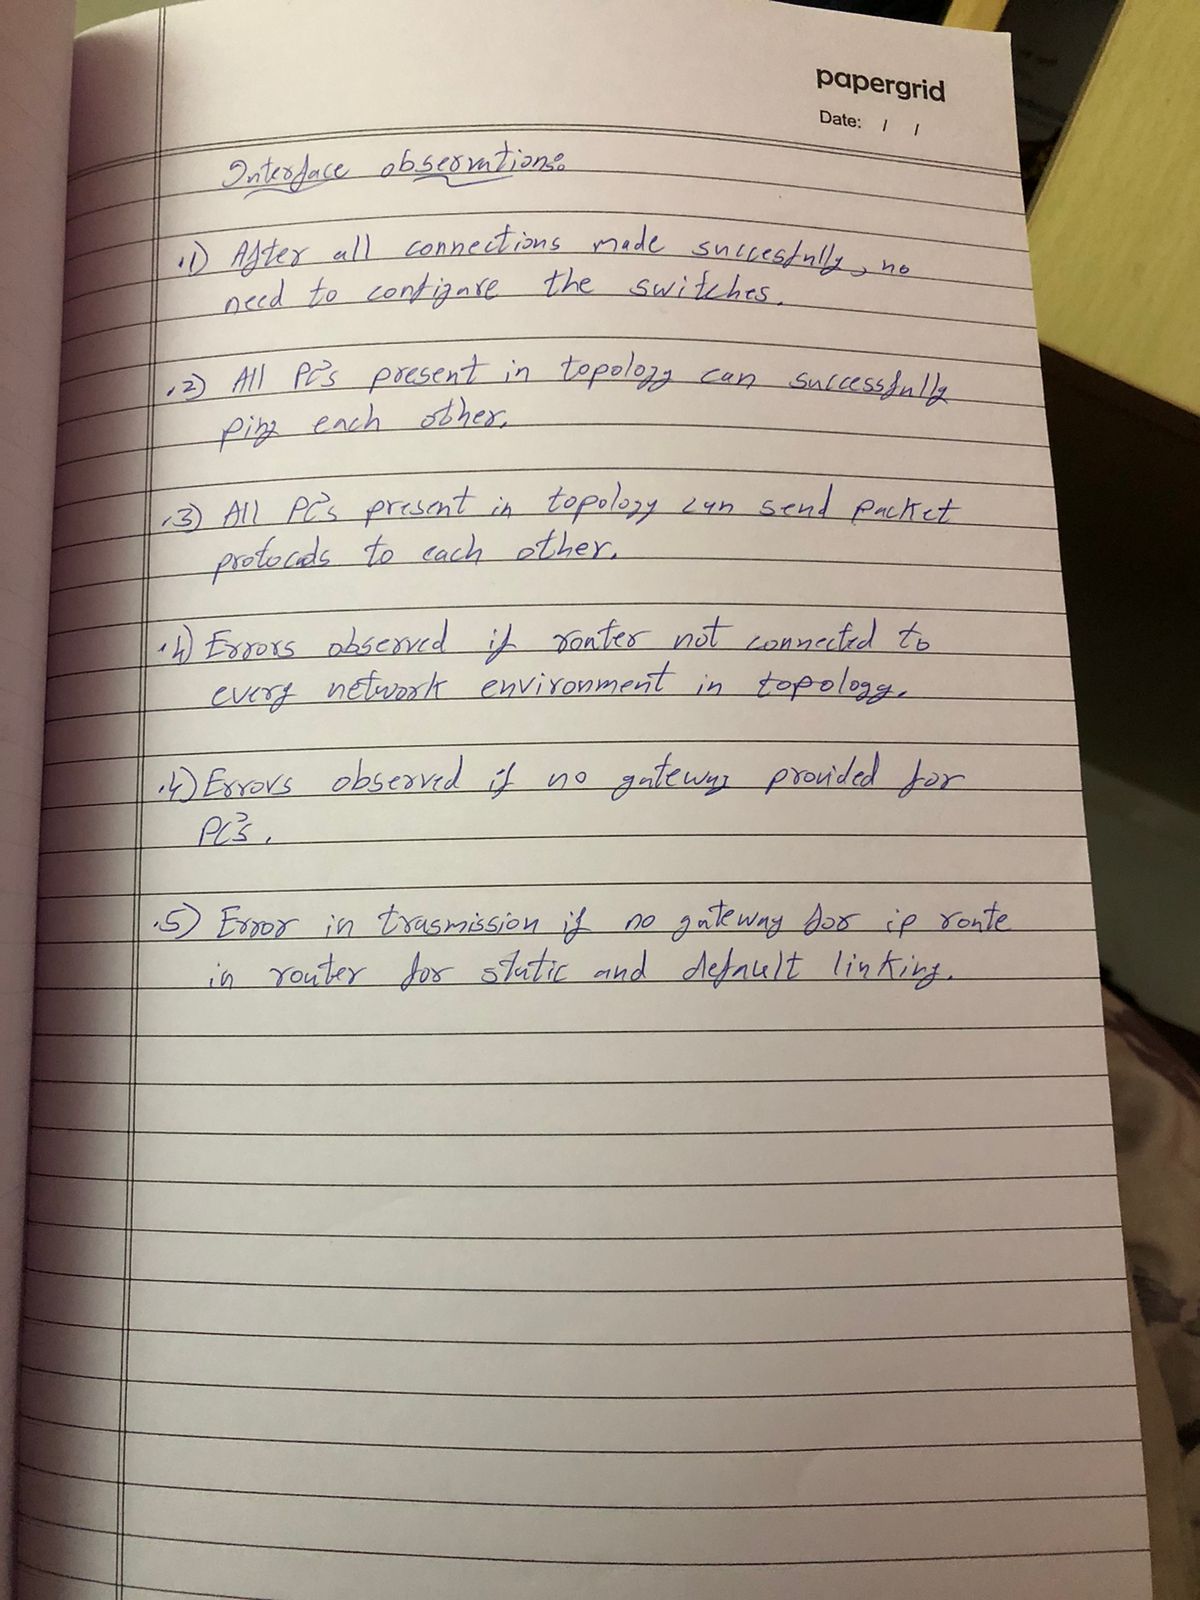 papergrid
Date: / /
Interface observations:
.1) After all connections made succesfully, no
need to configure the switches.
.2) All PC's present in topology can successfully
ping each other.
.3) All PC's present in topology can send packet
protocols to each other.
.4) Errors observed if router not connected to
every network environment in topology.
.4) Errors observed if no gateway provided for
PC's.
.5) Error in trasmission if no gateway for ip route
in router for static and default linking.